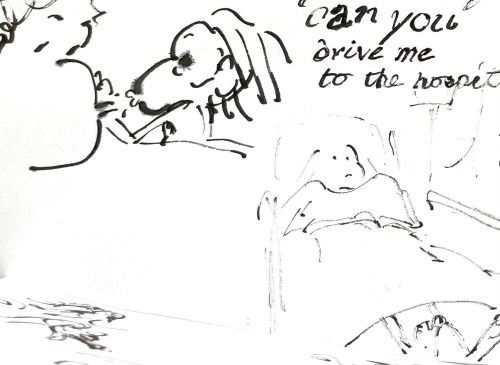 "can you
drive me
to the hospit